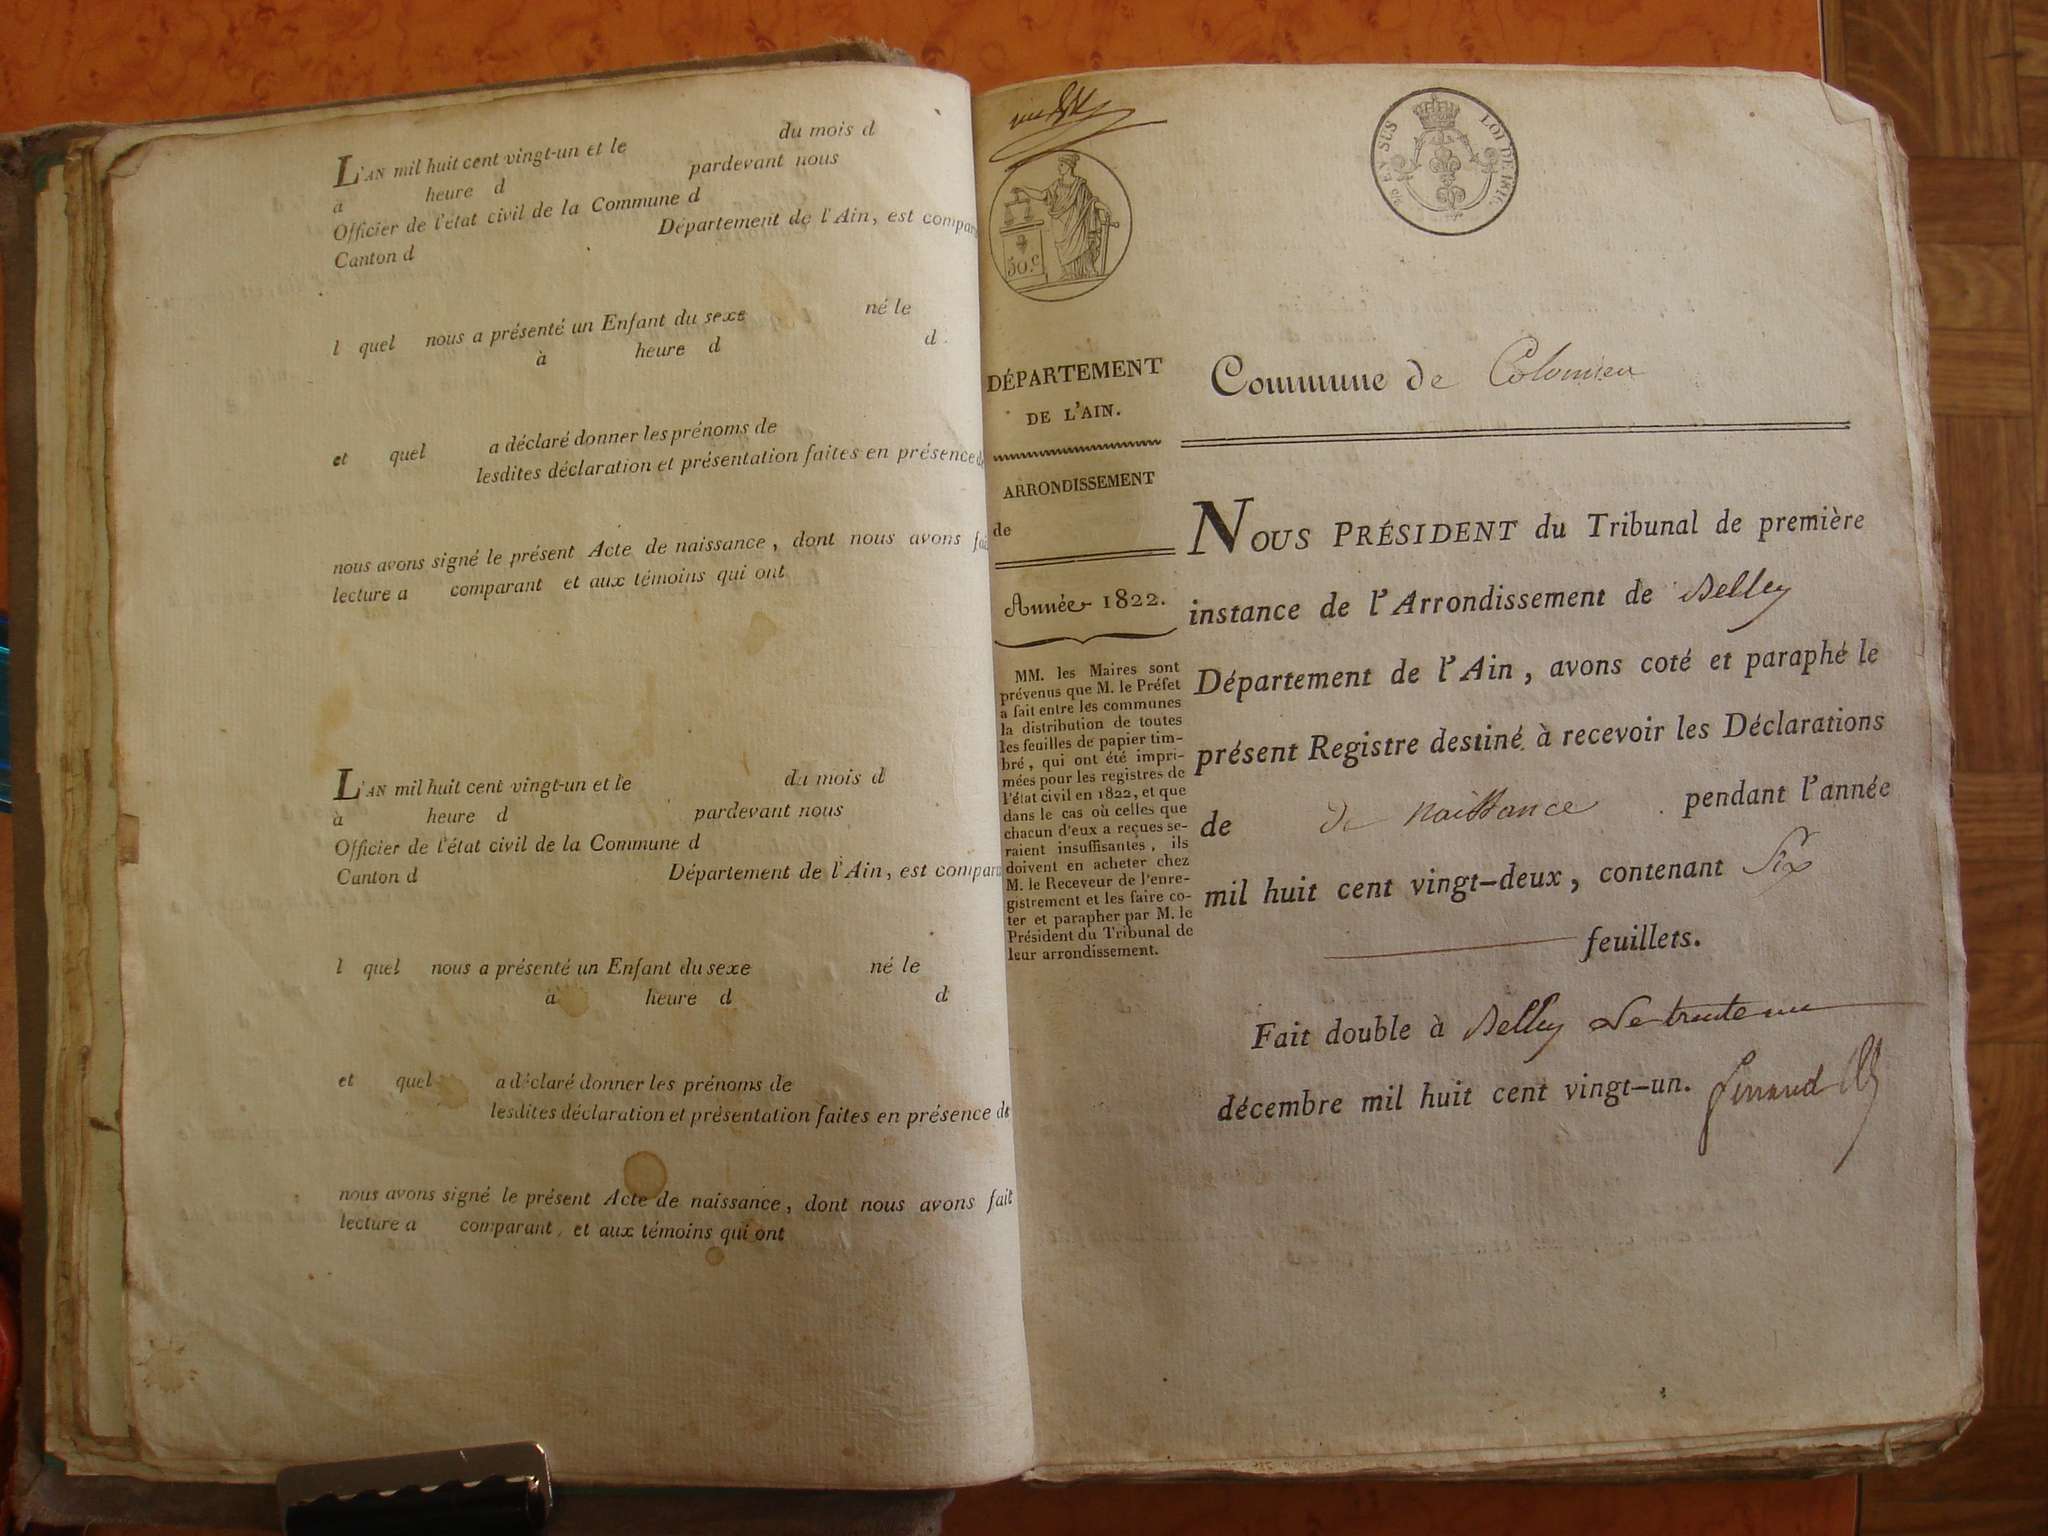 L'AN mil huit cent vingt-un et le du mois d
a heure d pardevant nous
Officier de l'état civil de la Commune d
Canton d Département de l'Ain, est compar
l quel nous a présenté un Enfant du sexe né le
à heure d d
et quel a déclaré donner les prénoms de
lesdites déclaration et présentation faites en présence de
nous avons signé le présent Acte de naissance, dont nous avons fai
lecture a comparant et aux témoins qui ont
L'AN mil huit cent vingt-un et le du mois d
à heure d pardevant nous
Officier de l'état civil de la Commune d
Canton d Département de l'Ain, est compara
l quel nous a présenté un Enfant du sexe né le
à heure d d
et quel a déclaré donner les prénoms de
lesdites déclaration et présentation faites en présence de
nous avons signé le présent Acte de naissance, dont nous avons fait
lecture a comparant, et aux témoins qui ont
50.c
EN SUS LOI DE
DÉPARTEMENT
DE L'AIN.
ARRONDISSEMENT
de
Année 1822.
MM. les Maires sont
prévenus que M. le Préfet
a fait entre les communes
la distribution de toutes
les feuilles de papier tim-
bré, qui ont été impri-
mées pour les registres de
l'état civil en 1822, et que
dans le cas où celles que
chacun d'eux a reçues se-
raient insuffisantes, ils
doivent en acheter chez
M. le Receveur de l'enre-
gistrement et les faire co-
ter et parapher par M. le
Président du Tribunal de
leur arrondissement.
Commune de Colomieu
NOUS PRÉSIDENT du Tribunal de première
instance de l'Arrondissement de Belley
Département de l'Ain, avons coté et paraphé le
présent Registre destiné à recevoir les Déclarations
de de naissance pendant l'année
mil huit cent vingt-deux, contenant Six
feuillets.
Fait double à Belley le trente un
décembre mil huit cent vingt-un.